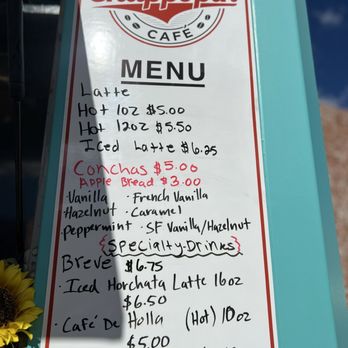 CAFÉ
MENU
Latte
Hot 1oz $5.00
Hot 12oz $5.50
Iced Latte $6.25
Conchas $5.00
Apple Bread $3.00
· Vanilla · French Vanilla
Hazelnut · Caramel
· Peppermint · SF Vanilla/Hazelnut
{Specialty-Drinks}
Breve $6.75
· Iced Horchata Latte 16oz
$6.50
· Café De Holla (Hot) 10oz
$5.00